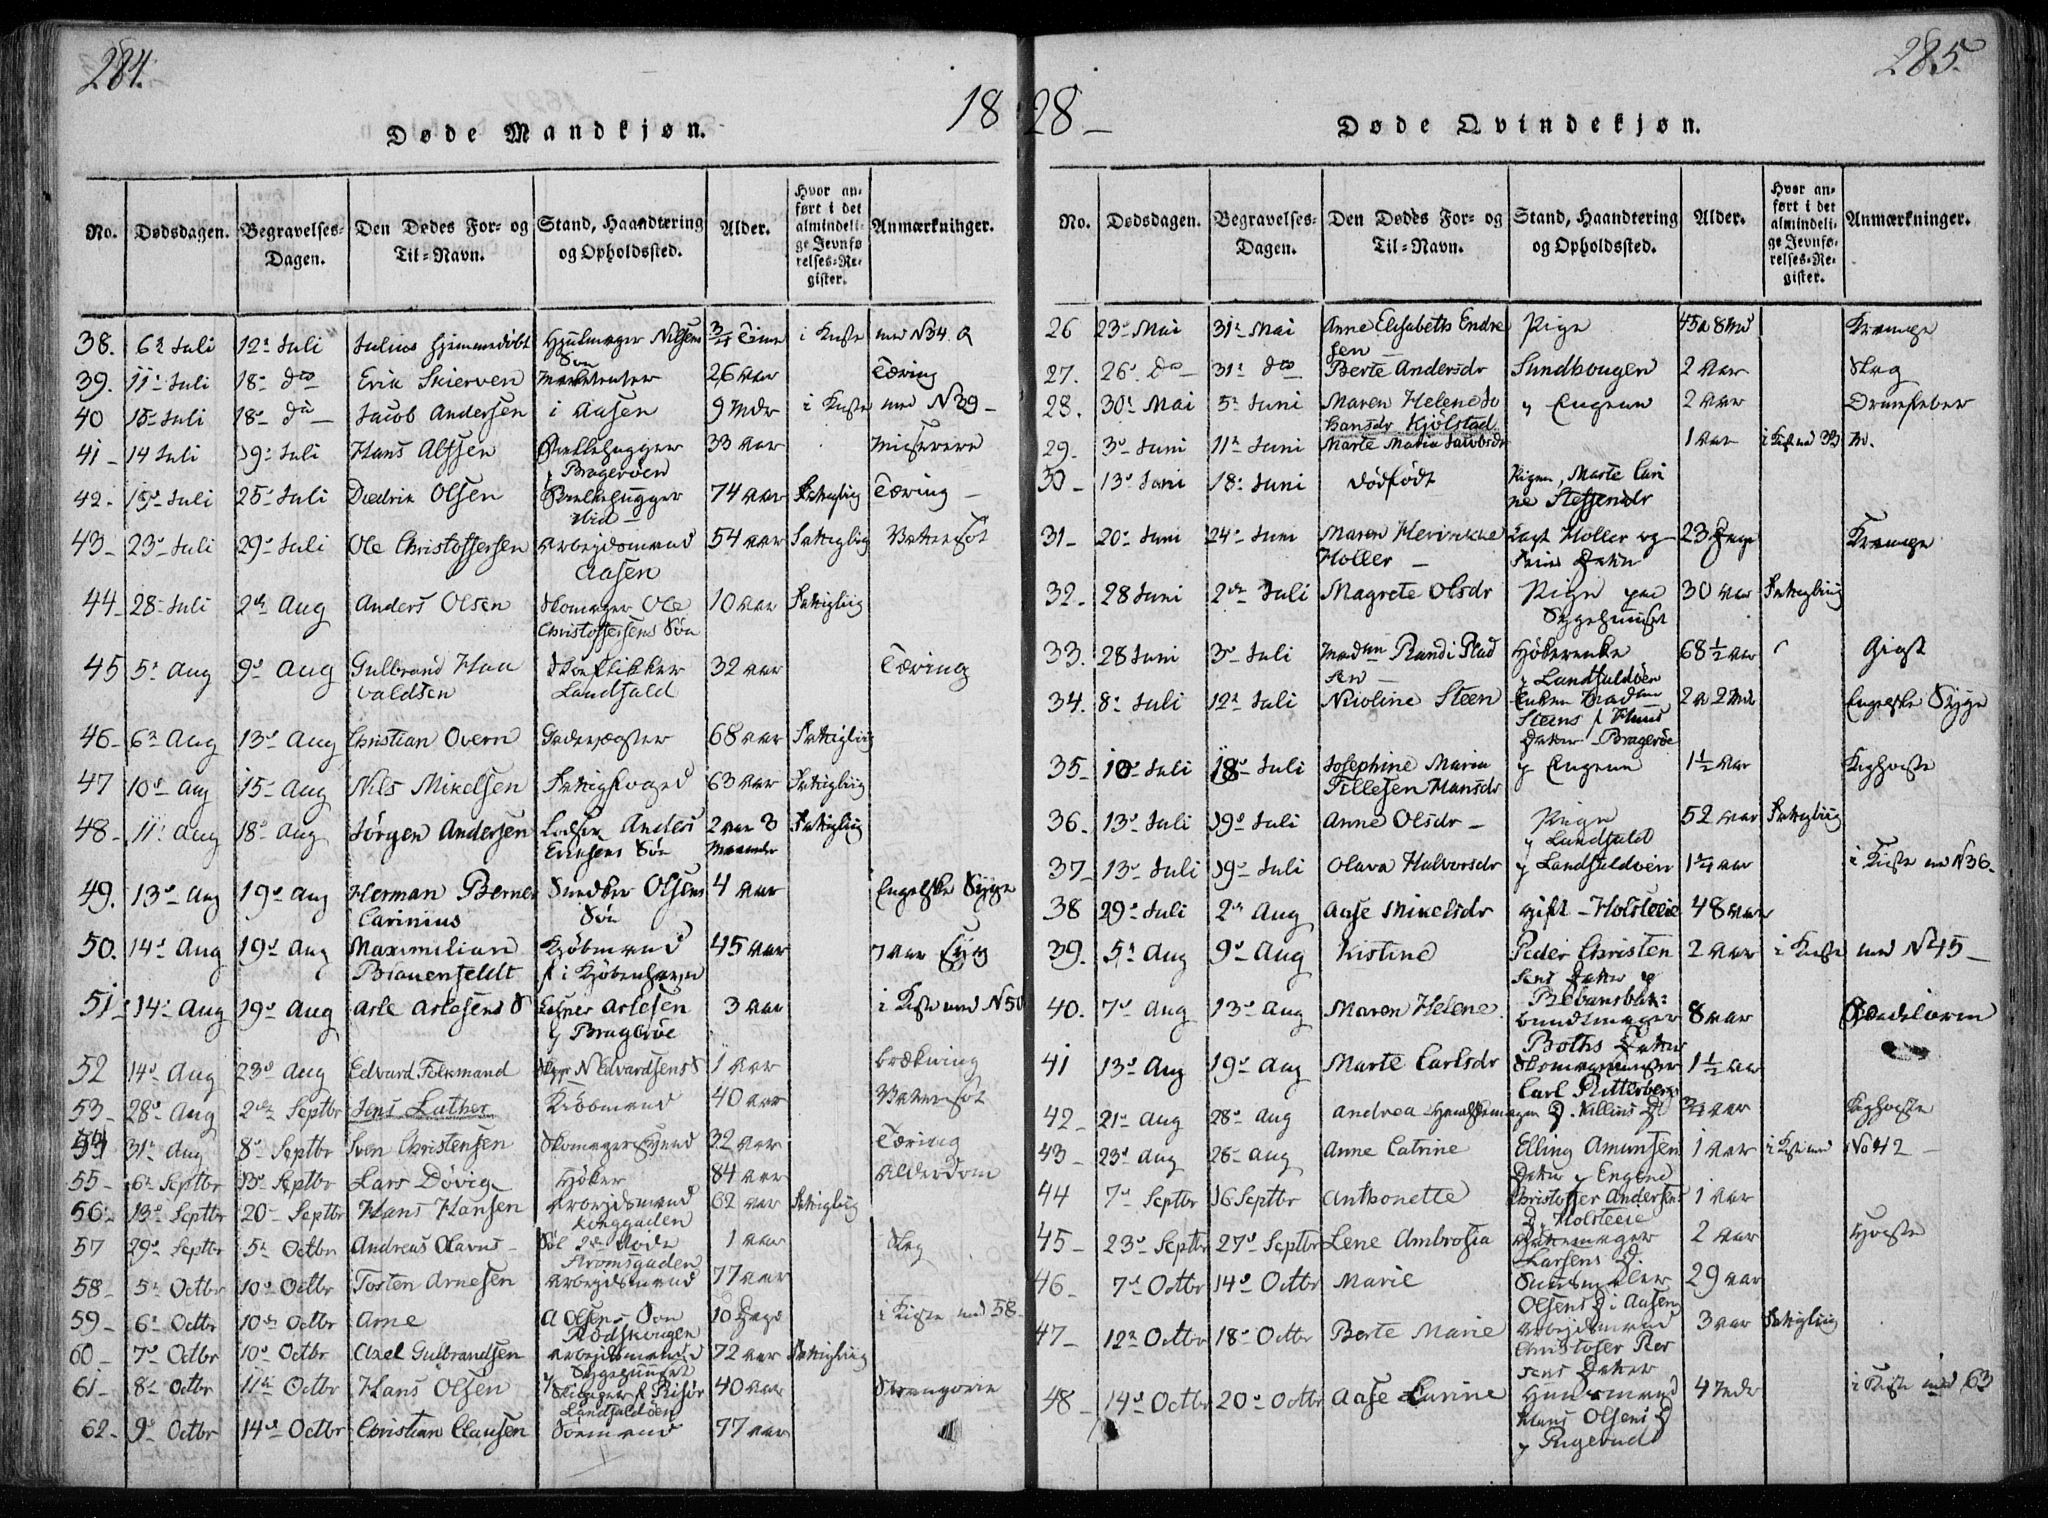 284.
18
Døde Mandkjøn.
No. Dødsdagen. Begravelses-Dagen. Den Dødes For- og Til-Navn. Stand, Haandtering og Opholdssted. Alder. Hvor anført i det almindelige Jevnførelses-Register. Anmærkninger.
38. 6te Juli 12te Juli Julius Hjemmedøbt Hjulmager Nilsens 3/4 Time i Kiste med N34.
Søn
39. 11te Juli 18de do Erik Skierven 26 Aar Tæring
40 15de Juli 18de do Jacob Andersen i Aasen 9 Mdr i Kiste med N39
41 14 Juli 19de Juli Hans 33 Aar Miserere
Bragerøen
42. 19de Juli 25de Juli Diedrik Olsen 74 Aar Fattiglig Tæring
43 23de Juli 29de Juli Ole Christoffersen Arbejdsmand 54 Aar Fattiglig Vattersot
Aasen
44 28de Juli 2den Aug Anders Olsen Skomager Ole 10 Aar Fattiglig
Christoffersens Søn
45 5te Aug 9de Aug Gulbrand Haa Skoflikker 32 Aar Tæring
valdsen Landfald
46 6te Aug 13de Aug Christian Overn 68 Aar Fattiglig
47 10de Aug 15de Aug Nils Mikelsen Fattigfoged 63 Aar Fattiglig
48 11te Aug 18de Aug Jørgen Andersen Anders 2 Aar 3 Fattiglig
Eriksens Søn Maaneder
49. 13de Aug 19de Aug Herman Berner Snedker Olsens 4 Aar Engelske Syge
Carinius Søn
50. 14de Aug 19de Aug Maximilian Kjøbmand 45 Aar 7 Aar Syg
f i Kjøbenhavn
51 14de Aug 19de Aug Arle Arlesens S Arlesen 3 Aar i Kiste med N50
Bragerøe
52 14de Aug 23de Aug Edvard Folkmand N Edvardsens S 1 Aar Brækning
53 28de Aug 2den Septbr Jens Luther Kiøbmand 40 Aar Vattersot
54 31te Aug 8de Septbr Sven Christensen Skomagersvend 32 Aar Tæring
55 6te Septbr 13de Septbr Lars Døvig Høker 84 Aar Alderdom
56 13de Septbr 20de Septbr Hans Hansen Arbejdsmand 62 Aar Fattiglig
Kongegaden
57 29de Septbr 5te Octbr Andreas Olavus 1 Aar Slag
Strømsgaden
58 5te Octbr 10de Octbr Tosten Arnesen Arbejdsmand 77 Aar
59 6te Octbr 10de Octbr Arne A Olsens Søn 10 Dage i Kiste med 58
Rødskougen
60 7de Octbr 10de Octbr Axel Gulbrandsen Arbejdsmand 72 Aar Fattiglig
Sygehuuset
61 8de Octbr 11te Octbr Hans Olsen f Risør 40 Aar
Landfaldøen
62 9de Octbr 14de Octbr Christian Clausen Sømand 77 Aar
28
285.
Døde Qvindekjøn.
No. Dødsdagen. Begravelses-Dagen. Den Dødes For- og Til-Navn. Stand, Haandtering og Opholdssted. Alder. Hvor anført i det almindelige Jevnførelses-Register. Anmærkninger.
26 23de Mai 31te Mai Anne Elisabeth Endre Pige 45 A 8 Md Krampe
sen
27. 26de do 31te do Berte Andersdr Sundhougen 2 Aar Slag
28. 30te Mai 5te Juni Maren Helene Jo y Engene 2 Aar Ormefeber
hansdr Kjølstad
29. 3de Juni 11te Juni Marte Maria Jacobsdr 1 Aar i Kiste med 33 M.
30 13de Juni 18de Juni dødfødt Pigen, Marte Cari
ne Steffensdr
31 20de Juni 24de Juni Maren Hevinche Capt Holler og 23 Dage Krampe
Holler Datter
32. 28 Juni 2den Juli Magrete Olsdr Pige paa 30 Aar Fattiglig
Sygehuuset
33. 28 Juni 3de Juli Madm Randi Høkerenke 68 1/2 Aar Gigt
y Landfaldøen
34. 8de Juli 12te Juli Nicoline Steen Enken Madm 2 A 2 Md Engelske Syge
Steens
Datter Bragerøe
35 10de Juli 18de Juli Josephine Maria y Engene 1 1/2 Aar Kighoste
Tillesen Hansdr
36. 13de Juli 19de Juli Anne Olsdr Pige 52 Aar Fattiglig
y Landfald
37 13de Juli 19de Juli Olava Halvorsdr y Landfaldøen 1 1/4 Aar i Kiste med N36
38 29de Juli 2den Aug Aase Mikelsdr gift Holsteie 48 Aar
39. 5te Aug 9de Aug Kistine Peder Christen 2 Aar i Kiste med N45
sens Datter y
40. 7de Aug 13de Aug Maren Helene Bundtmager 8 Aar
Boths Datter
41 13de Aug 19de Aug Marte Carlsdr 1 1/2 Aar
Carl Ritterberg
42 21de Aug 28de Aug Andrea 3/4 Aar Kighoste
43 23de Aug 28de Aug Anne Catrine Elling Amunsen 1 Aar i Kiste med No 42
Datter y Engene
44 7de Septbr 16 Septbr Anthonette Christoffer Andersens 1 Aar
D. Holsteie
45 23de Septbr 27de Septbr Lene Ambrosia 2 Aar Hoste
Larsens D.
46 7de Octbr 14de Octbr Marie 29 Aar
Olsens D i Aasen
47 12te Octbr 18de Octbr Berte Marie Arbejdsmand 3 Aar Fattiglig
Christofer Per
sens Datter
48 14de Octbr 20de Octbr Aase Larine Huusmand 4 Mdr i Kiste med 63
Hans Olsens D